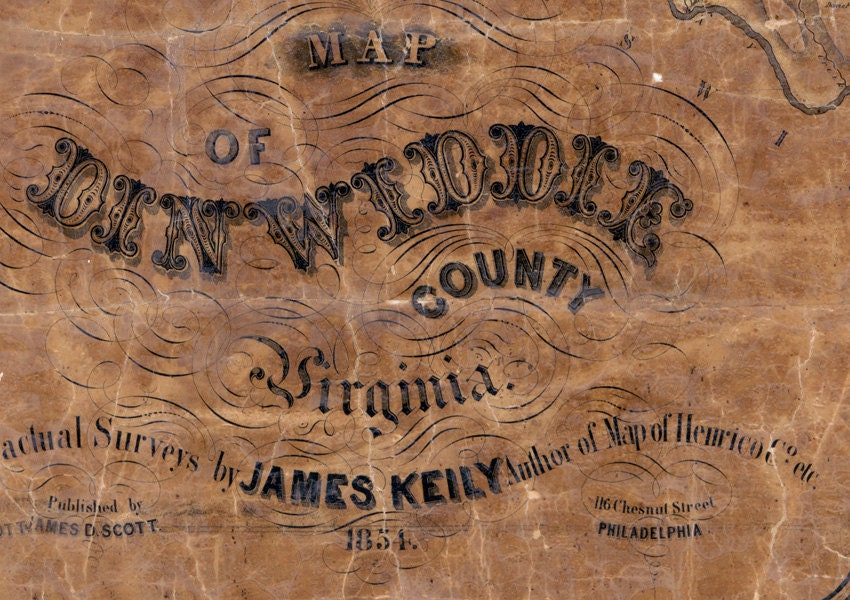 MAP
OF
DINWIDDIE
COUNTY
Virginia.
actual Surveys by JAMES KEILY Author of Map of Henrico Co. etc.
Published by
JAMES D. SCOTT.
116 Chesnut Street
PHILADELPHIA
1854.